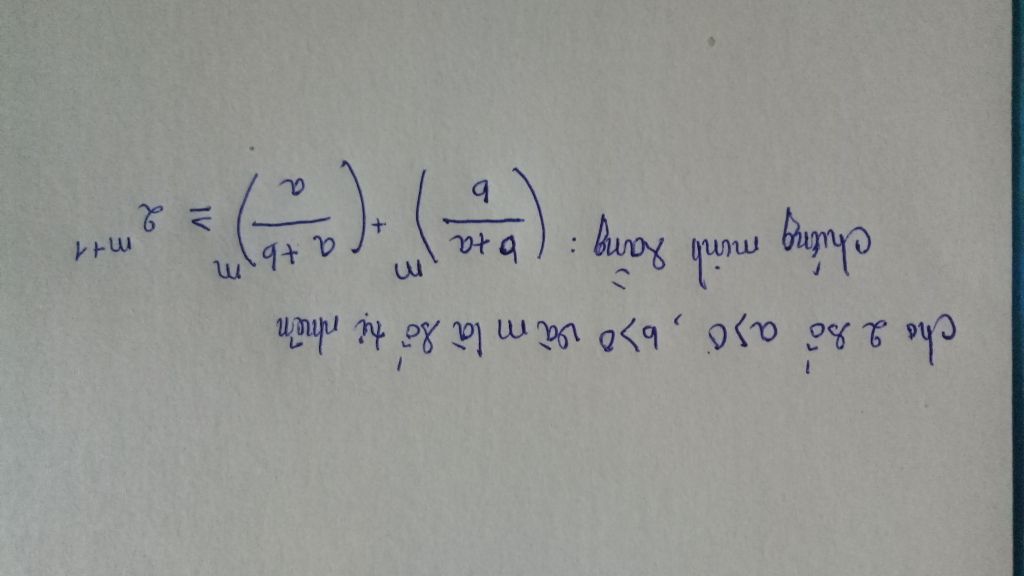 Cho 2 số a>0, b>0 và m là số tự nhiên
chứng minh rằng: (b+a/b)^m + (a+b/a)^m ≥ 2^m+1